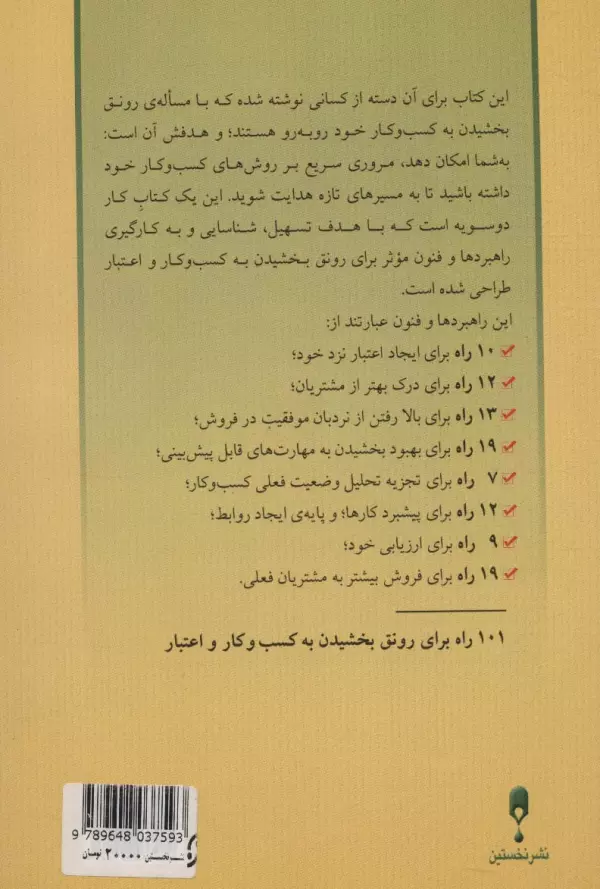 این کتاب برای آن دسته از کسانی نوشته شده که با مسأله‌ی رونق
بخشیدن به کسب‌وکار خود روبه‌رو هستند؛ و هدفش آن است:
به‌شما امکان دهد، مروری سریع بر روش‌های کسب‌وکار خود
داشته باشید تا به مسیرهای تازه هدایت شوید. این یک کتابِ کار
دوسویه است که با هدف تسهیل، شناسایی و به کارگیری
راهبردها و فنون مؤثر برای رونق بخشیدن به کسب‌وکار و اعتبار
طراحی شده است.
این راهبردها و فنون عبارتند از:
۱۰ راه برای ایجاد اعتبار نزد خود؛
۱۲ راه برای درک بهتر از مشتریان؛
۱۳ راه برای بالا رفتن از نردبان موفقیت در فروش؛
۱۹ راه برای بهبود بخشیدن به مهارت‌های قابل پیش‌بینی؛
۷ راه برای تجزیه تحلیل وضعیت فعلی کسب‌وکار؛
۱۲ راه برای پیشبرد کارها؛ و پایه‌ی ایجاد روابط؛
۹ راه برای ارزیابی خود؛
۱۹ راه برای فروش بیشتر به مشتریان فعلی.
۱۰۱ راه برای رونق بخشیدن به کسب‌وکار و اعتبار
9 789648 037593
نشرنخستین ۲۰۰۰۰ تومان
نشرنخستین